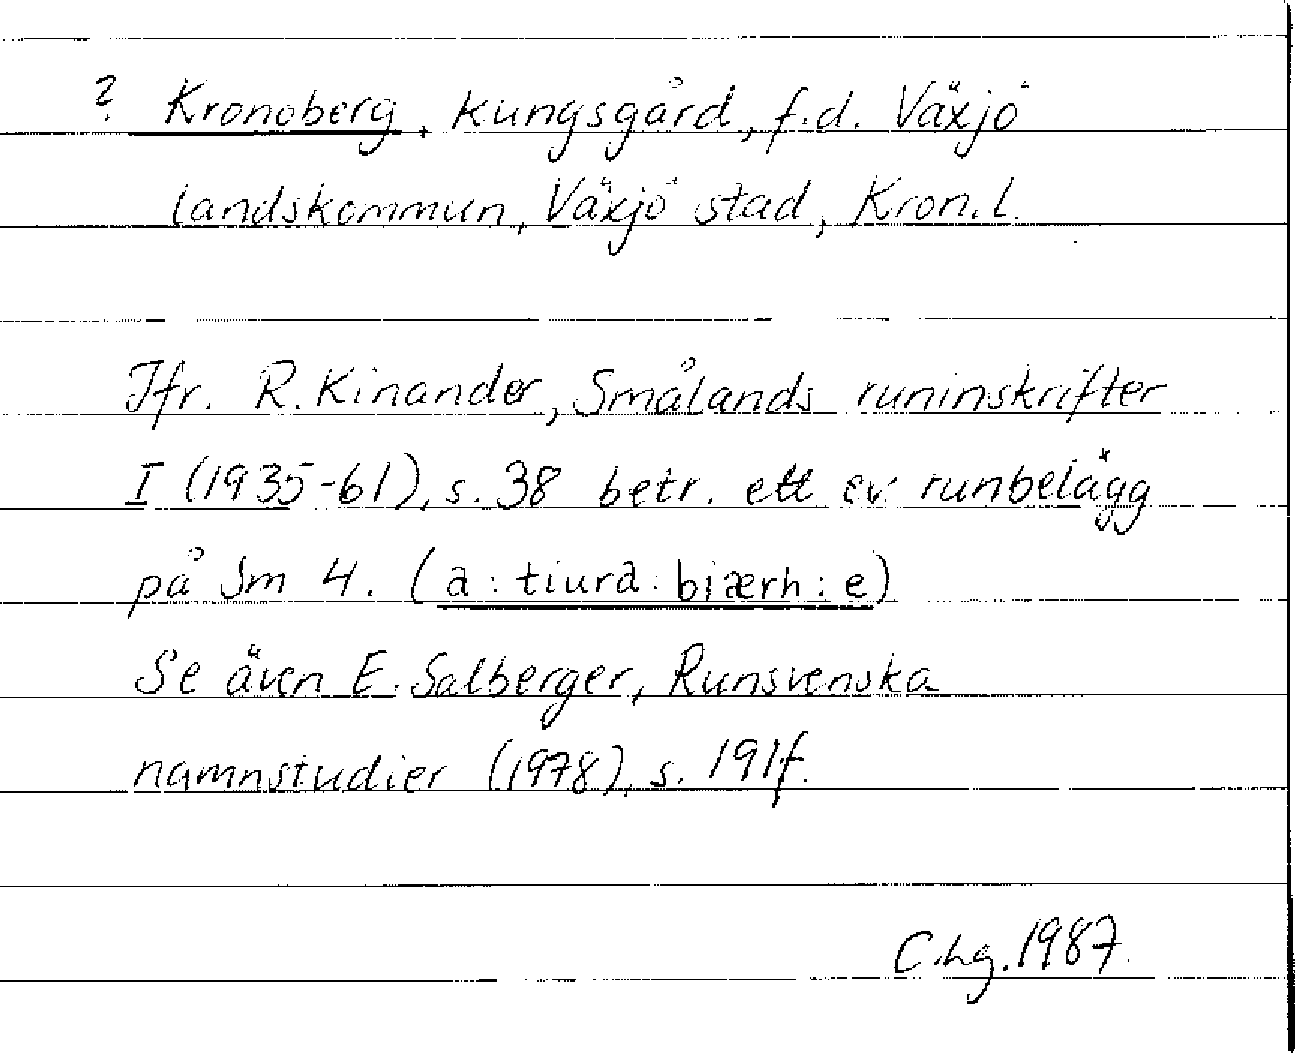 ? Kronoberg, kungsgård, f.d. Växjö
landskommun, Växjö stad, Kron.l.
Jfr. R. Kinander, Smålands runinskrifter
I (1935-61), s. 38 betr. ett ev. runbelägg
på Sm 4. (a : tiura : biærh : e)
Se även E. Salberger, Runsvenska
namnstudier (1978), s. 191f.
C.hg. 1987.